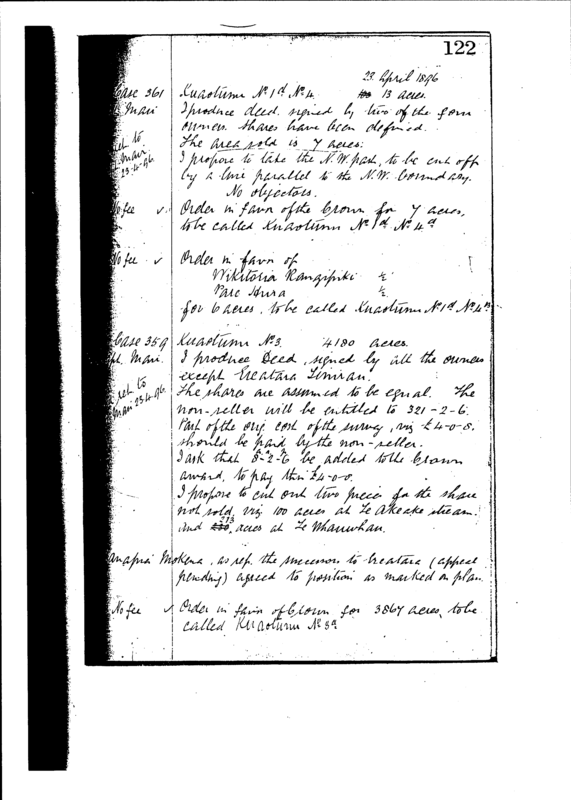 122
23 April 1896
Case 361 Kuaotunu No 1d No 4. 13 acres.
Mair I produce deed signed by two of the four
owners. Shares have been defined.
The area sold is 7 acres.
I propose to take the N.W. part, to be cut off
ret to
Mair
23-4-96.
by a line parallel to the N.W. boundary.
No objectors.
No fee ✓ Order in favor of the Crown for 7 acres,
to be called Kuaotunu No 1d No 4a
No fee ✓ Order in favor of
Wikitoria Rangipiki ½
Pare Hura ½
for 6 acres, to be called Kuaotunu No 1d No 4B
Case 359 Kuaotunu No 3. 4180 acres.
Mair. I produce Deed, signed by all the owners
except Ereatara
ret to
Mair 23-4-96.
The shares are assumed to be equal. The
non-seller will be entitled to 321-2-6.
Part of the orig cost of the survey, viz £4-0-8.
should be paid by the non-seller.
I ask that 8-2-6 be added to the Crown
award, to pay this £4-0-0.
I propose to cut out two pieces for the share
not sold, viz 100 acres at Te Akeake stream.
and 213 acres at Te
Mokena, as rep. the successors to Ereatara (appeal
pending) agreed to position as marked on plan.
No fee ✓ Order in favor of Crown for 3867 acres, to be
called Kuaotunu No 3a